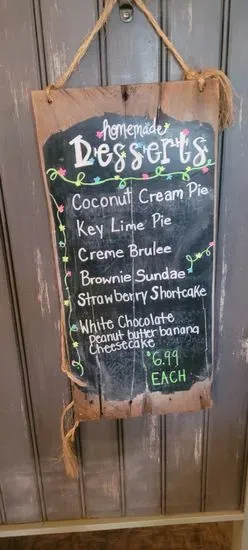 homemade
Desserts
Coconut Cream Pie
Key Lime Pie
Creme Brulee
Brownie Sundae
Strawberry Shortcake
White Chocolate
Peanut butter banana
Cheesecake
$6.99
EACH